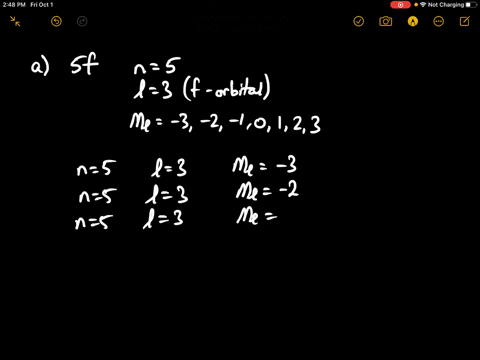 2:48 PM Fri Oct 1
Not Charging
a) 5f n = 5
l = 3 (f-orbital)
Mℓ = -3, -2, -1, 0, 1, 2, 3
n=5 l=3 Mℓ = -3
n=5 l=3 Mℓ = -2
n=5 l=3 Mℓ =